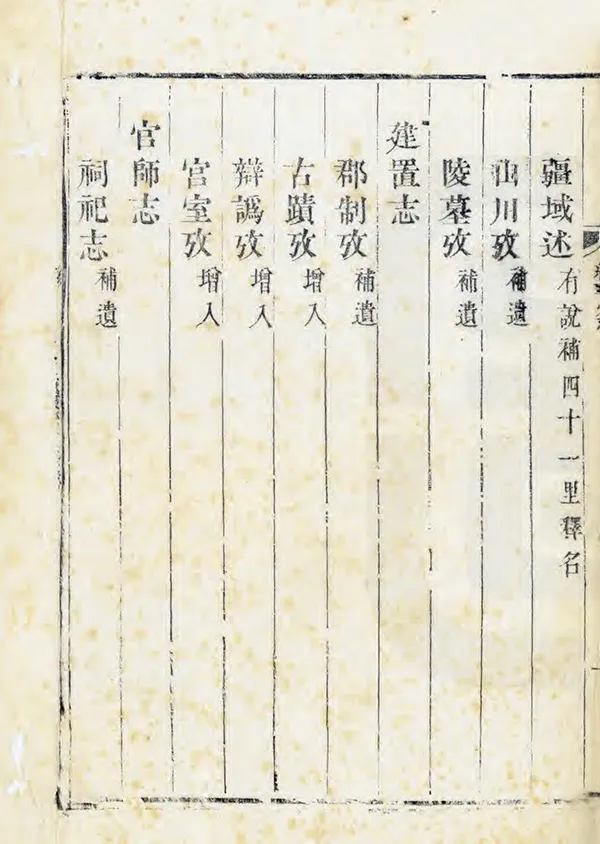 疆域述 有說補四十一里釋名
山川攷 補遺
陵墓攷 補遺
建置志
郡制攷 補遺
古蹟攷 增入
辯譌攷 增入
官室攷 增入
官師志
祠祀志 補遺